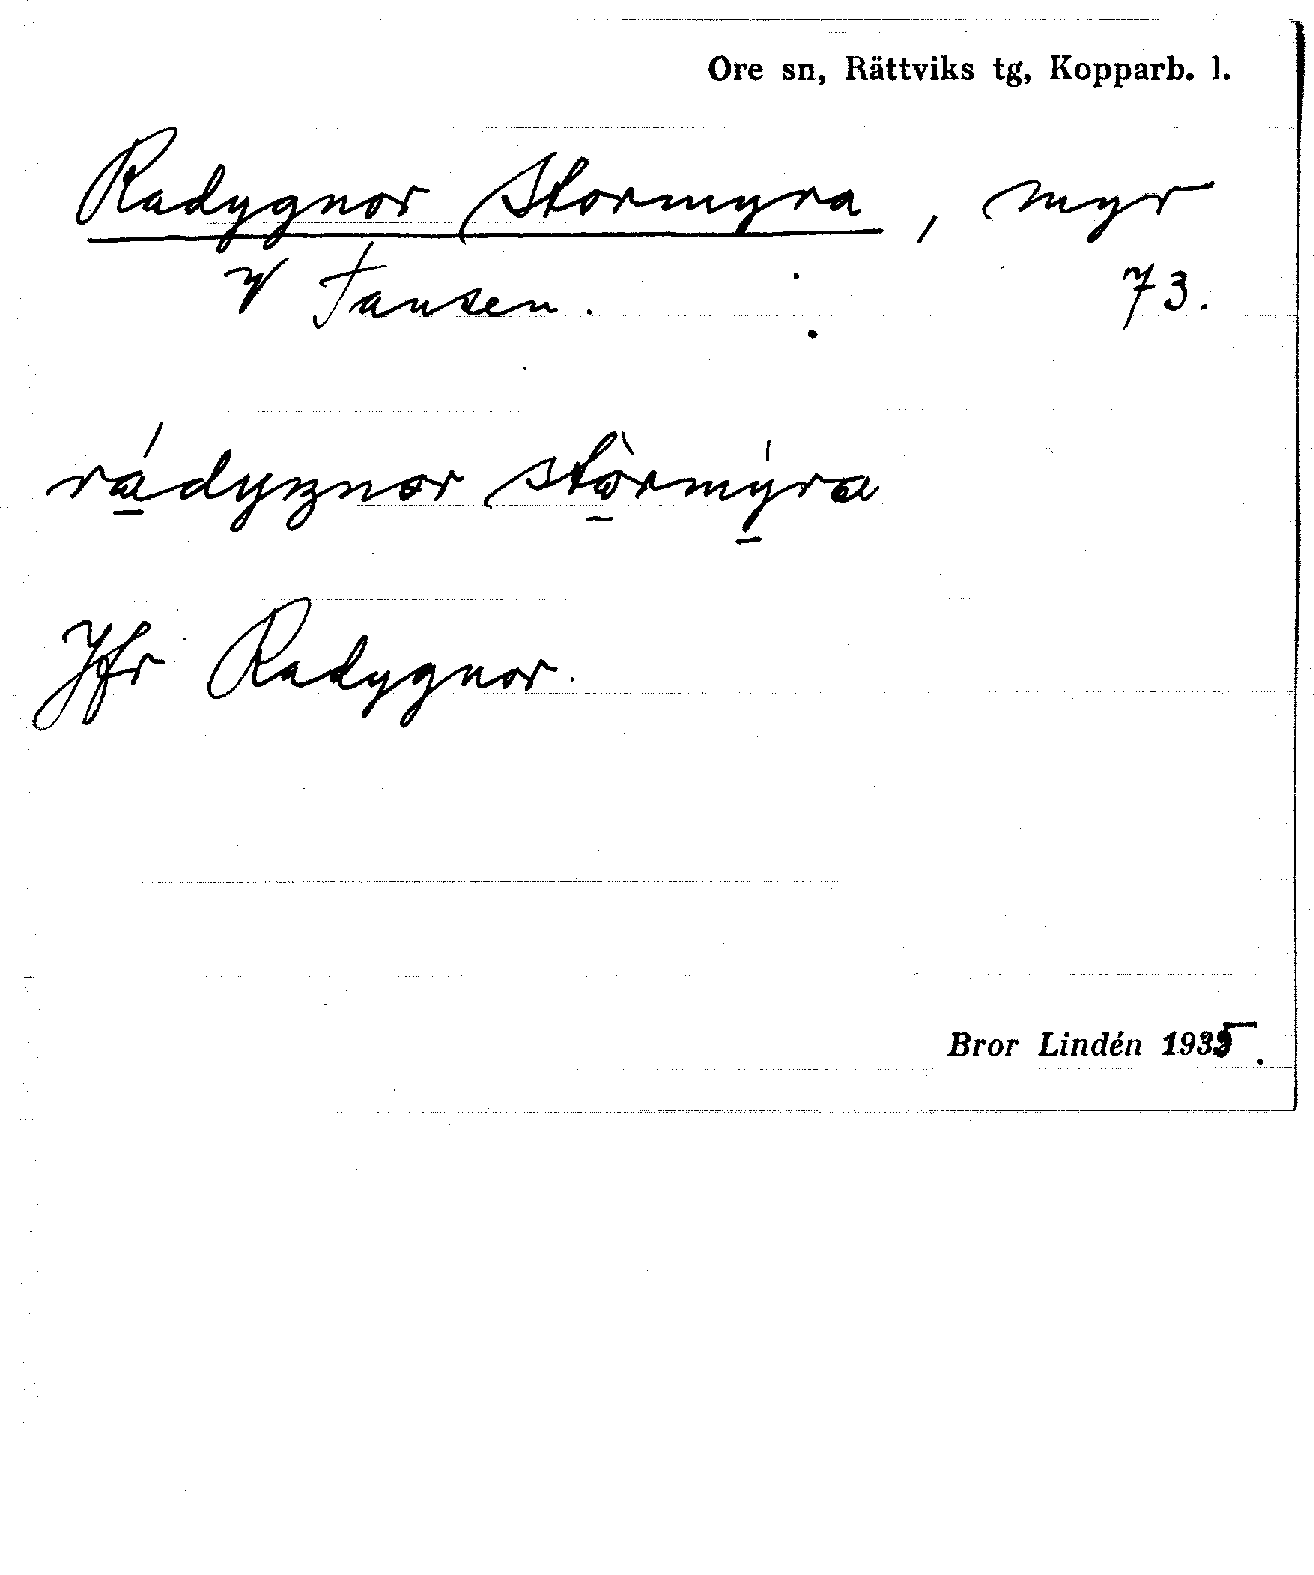 Ore sn, Rättviks tg, Kopparb. l.
Radygnor Stormyra, myr
v/ Tansen. 73.
rádyznor stòrmýra
Jfr Radygnor.
Bror Lindén 1935.